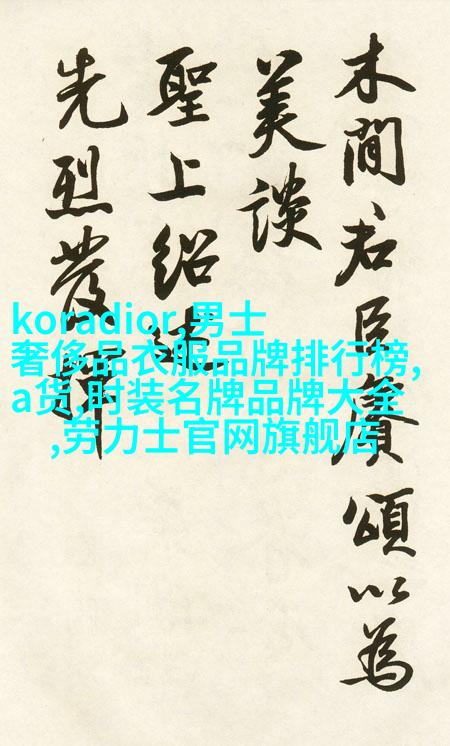 木間君臣賡頌以為
美談
聖上紹
先烈發揮
koradior,男士
奢侈品衣服品牌排行榜,
a货,时装名牌品牌大全
,劳力士官网旗舰店